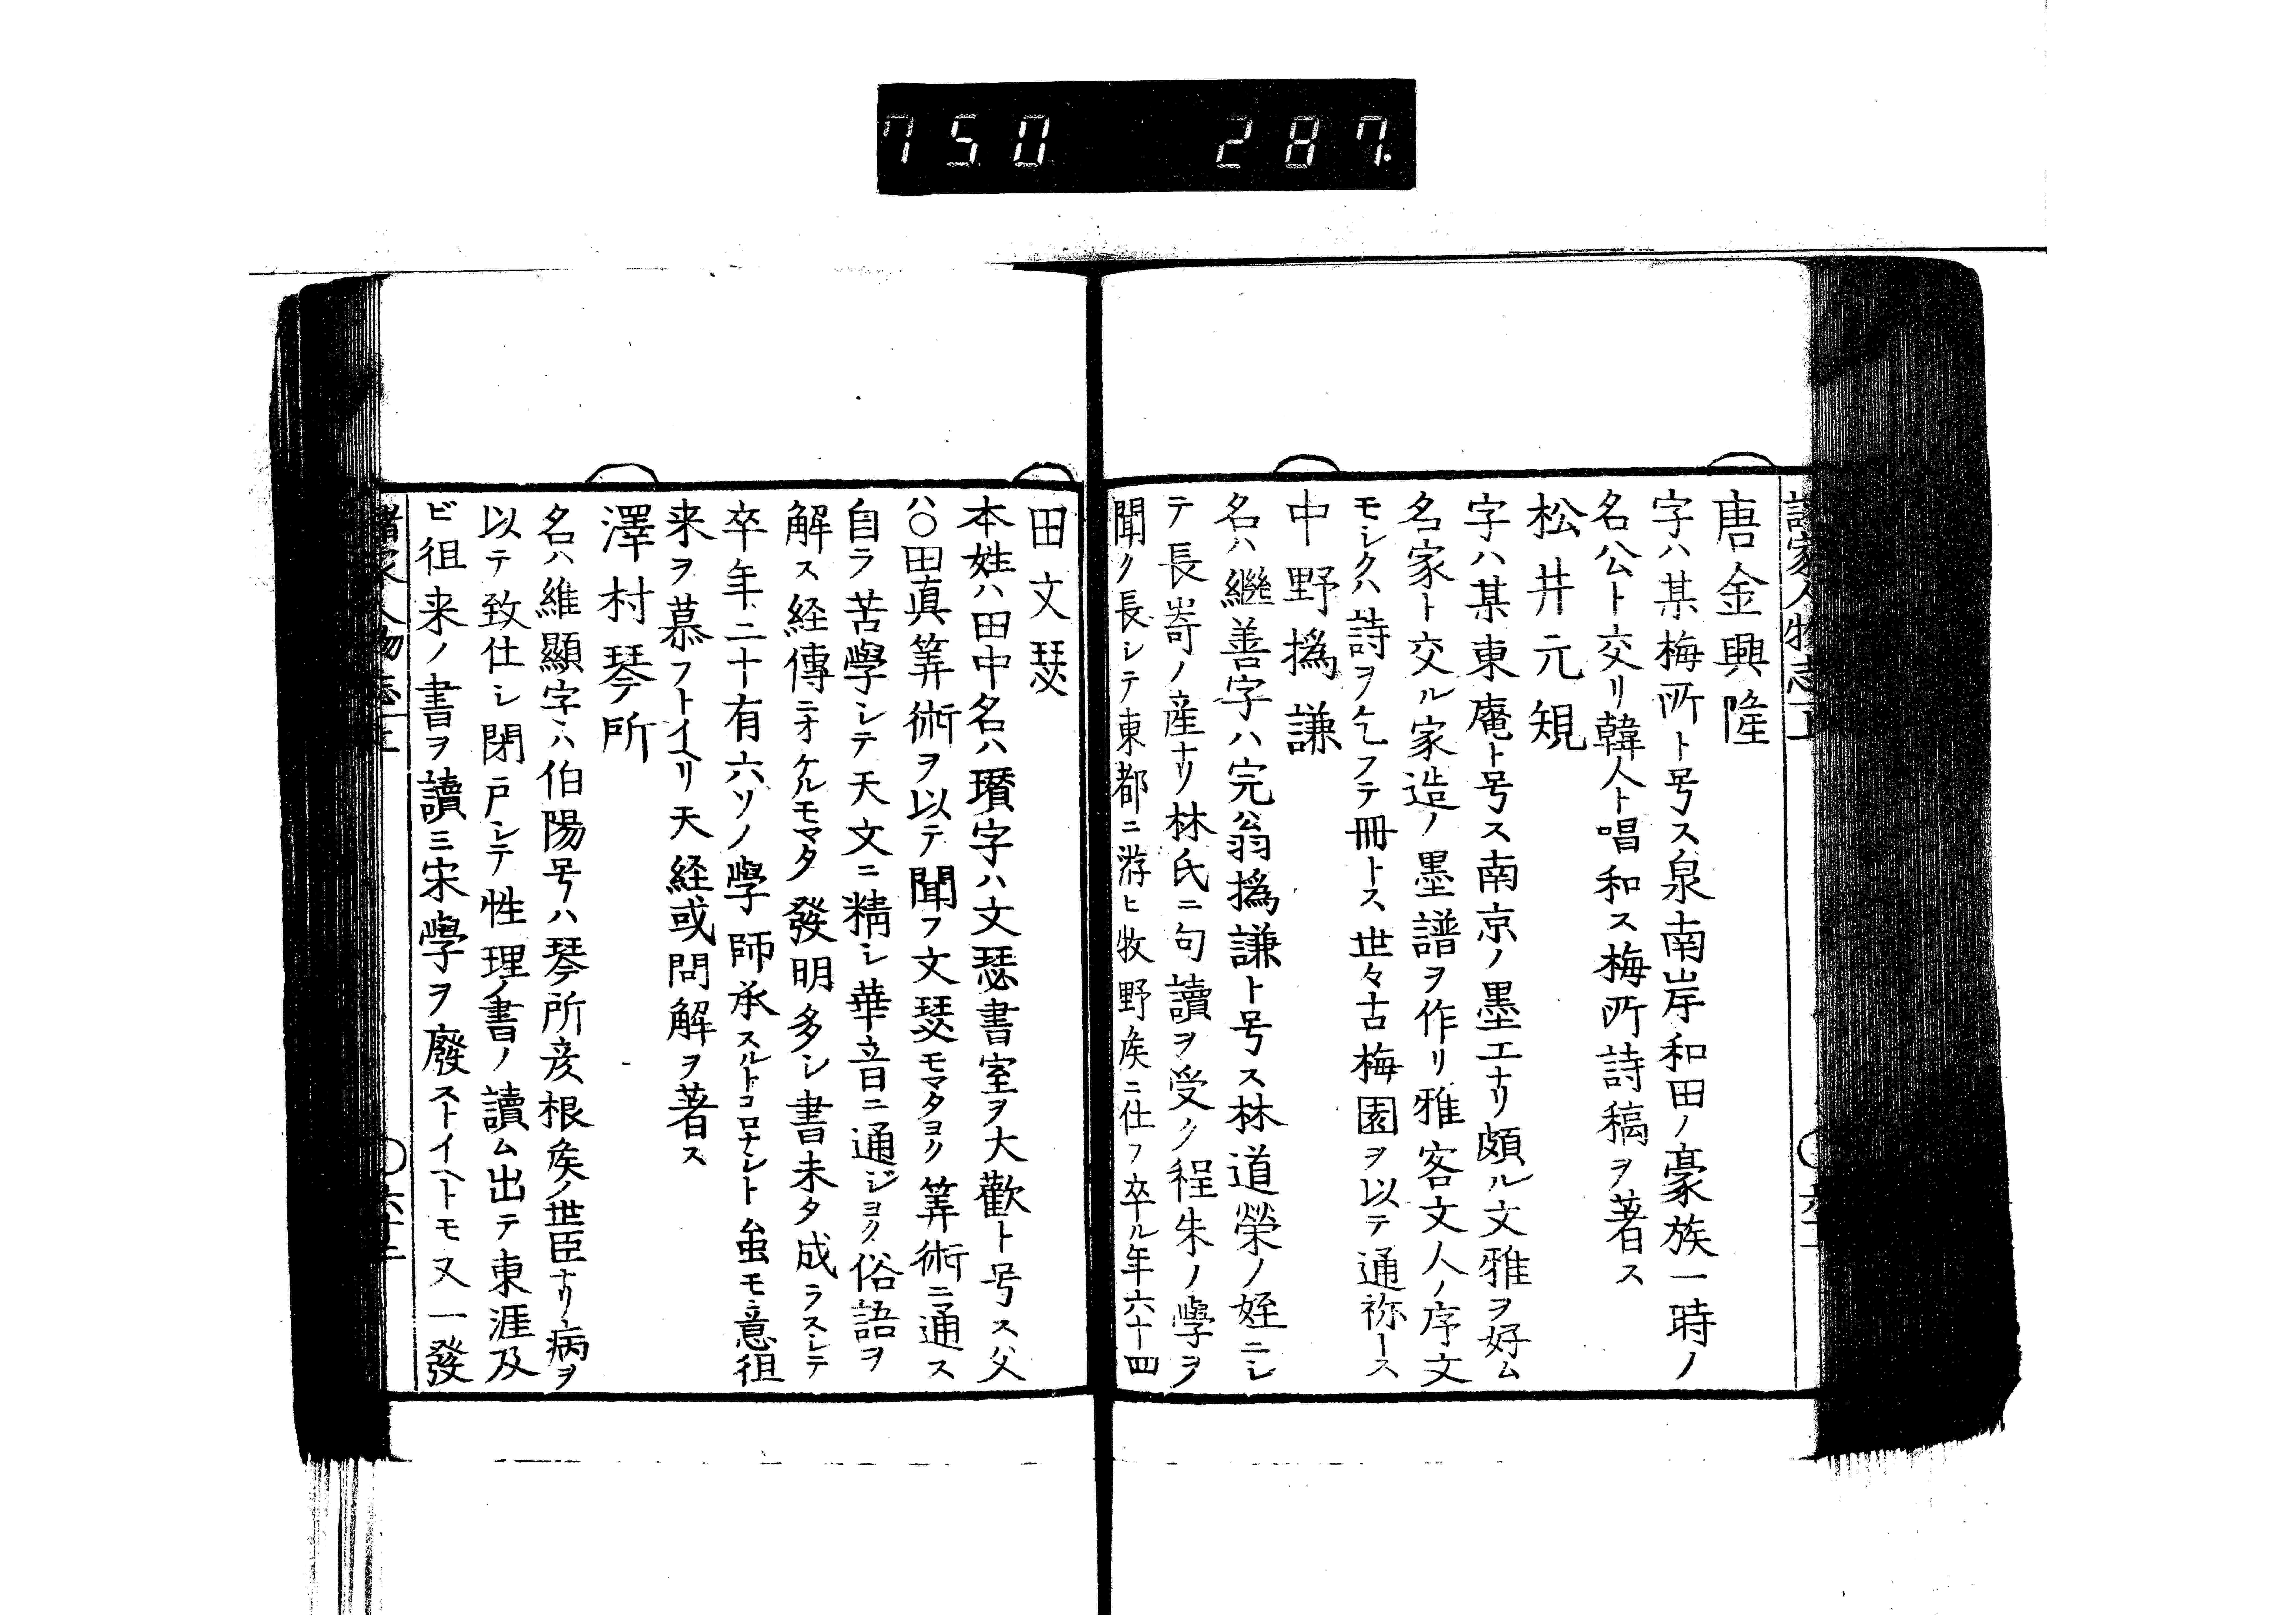 750 287
唐金興隆
字ハ某梅所ト号ス泉南岸和田ノ豪族一時ノ
名公ト交リ韓人ト唱和ス梅所詩稿ヲ著ス
松井元規
字ハ某東庵ト号ス南京ノ墨工ナリ頗ル文雅ヲ好ム
名家ト交ル家造ノ墨譜ヲ作リ雅客文人ノ序文
モシクハ詩ヲ乞フテ冊トス世々古梅園ヲ以テ通称トス
中野撝謙
名ハ繼善字ハ完翁撝謙ト号ス林道榮ノ姪ニシ
テ長嵜ノ産ナリ林氏ニ句讀ヲ受ク程朱ノ學ヲ
聞ク長シテ東都ニ游ヒ牧野矦ニ仕フ卒ル年六十四
田文瑟
本姓ハ田中名ハ瓚字ハ文瑟書室ヲ大歡ト号ス父
ハ〇田眞筭術ヲ以テ聞フ文瑟モマタヨク筭術ニ通ス
自ラ苦學シテ天文ニ精シ華音ニ通ジヨク俗語ヲ
解ス経傳ニオケルモマタ發明多シ書未タ成ラスシテ
卒年二十有六ソノ學師承スルトコロナシト𧈧モ意徂
来ヲ慕フトイヘリ天経或問解ヲ著ス
澤村琴所
名ハ維顯字ハ伯陽号ハ琴所彦根矦ノ世臣ナリ病ヲ
以テ致仕シ閉戸シテ性理ノ書ノ讀ム出テ東涯及
ビ徂来ノ書ヲ讀ミ宋學ヲ廢ストイヘトモ又一發